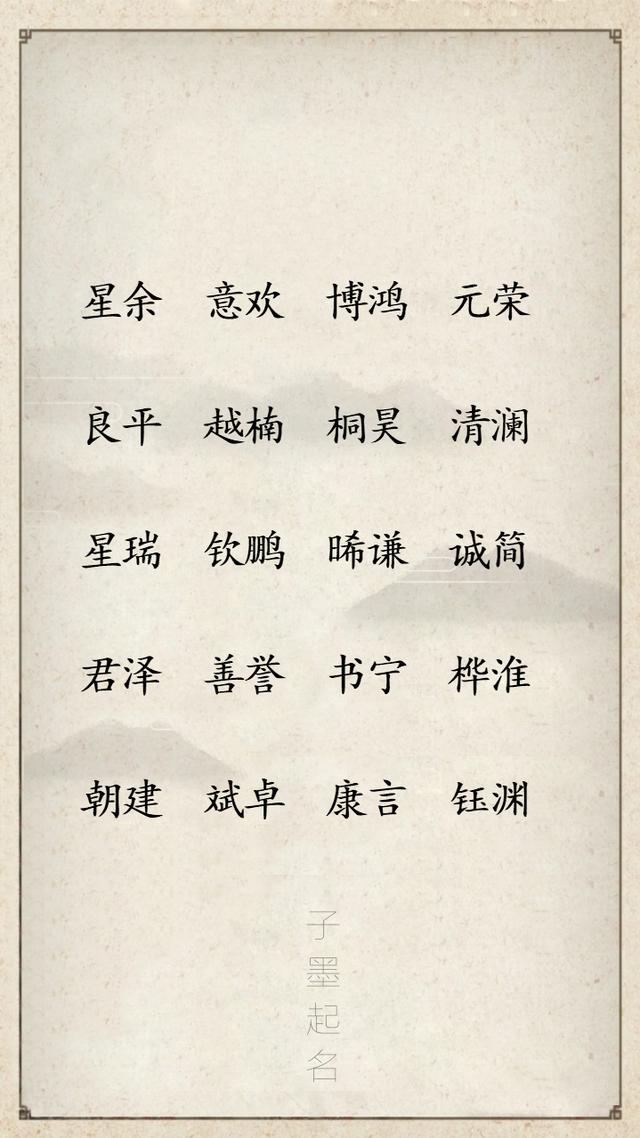 星余 意欢 博鸿 元荣
良平 越楠 桐昊 清澜
星瑞 钦鹏 晞谦 诚简
君泽 善誉 书宁 桦淮
朝建 斌卓 康言 钰渊
子墨起名